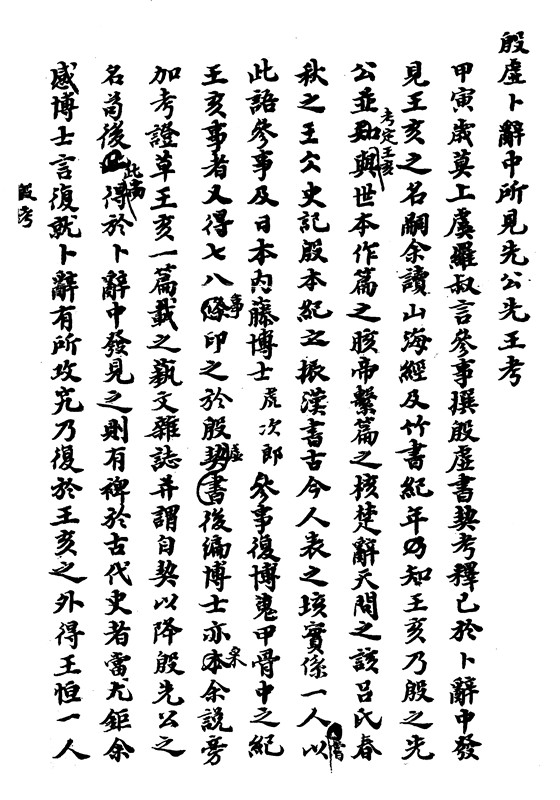 殷虛卜辭中所見先公先王考
甲寅歲莫上虞羅叔言參事撰殷虛書契考釋已於卜辭中發
見王亥之名嗣余讀山海經及竹書紀年乃知王亥乃殷之先
公並與世本作篇之胲帝繫篇之核楚辭天問之該呂氏春
考定王亥
秋之王冰史記殷本紀之振漢書古今人表之垓實係一人以
嘗
此語參事及日本內藤博士虎次郎參事復博蒐甲骨中之紀
王亥事者又得七八條印之於殷虛書契後編博士亦采余說旁
加考證草王亥一篇載之藝文雜誌并謂自契以降殷先公之
名苟後此尚得於卜辭中發見之則有裨於古代史者當尤鉅余
感博士言復就卜辭有所攻究乃復於王亥之外得王恒一人
殷考